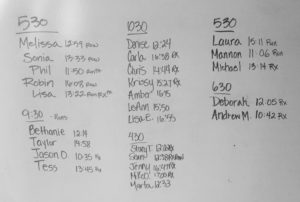 530
Melissa 12:59 Row
Sonia 13:33 Row
Phil 11:50
Robin 16:08 Row
Lisa 13:22 Run Rx
9:30 - Run
Bethanie 12:14
Taylor 14:58
Jason O. 10:35
Tess 13:45
1030
Denise 12:24
Carla 16:38 RX
Chris 14:44 RX
Krissy 15:27 RX
Amber 16:15
LeAnn 15:50
Lisa E. 16:55
430
Stacy T. 12:12
Sean 12:38
Jenny 16:47 RX
Mike O. 17:00 RX
Marta 12:33
530
Laura 15:11 Run
Mannon 11:06 Run
Michael 13:14 Rx
630
Deborah 12:05 Rx
Andrew M. 10:42 Rx